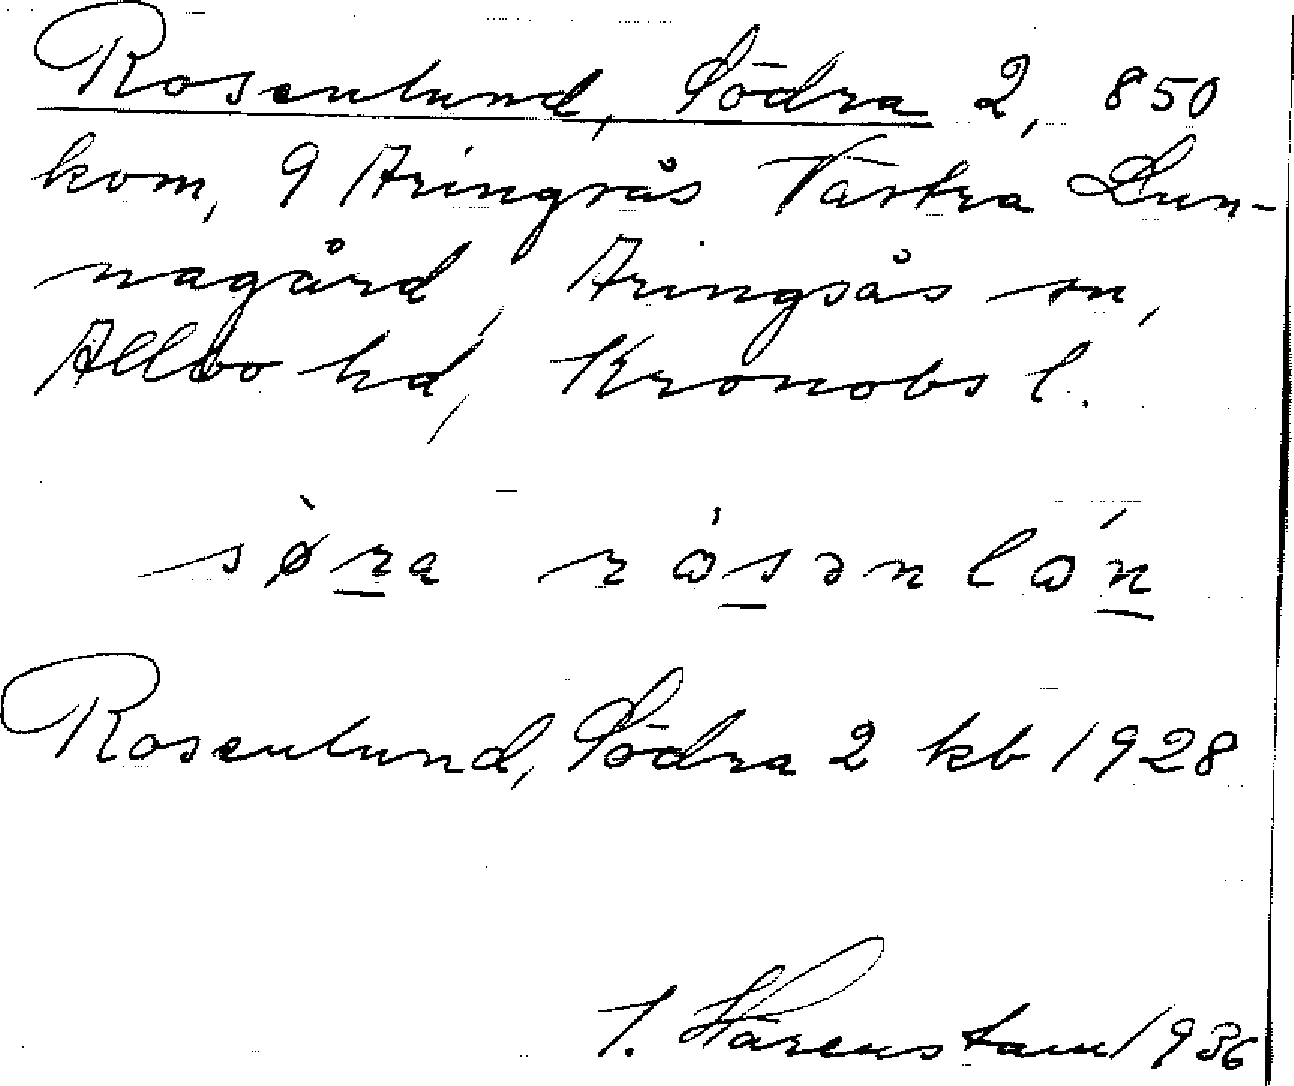 Rosenlund, Södra 2, 850
kom, 9 Aringsås Västra Lun-
nagård, Aringsås sn,
Allbo hd, Kronobs l.
sø̀ra ròsənlón
Rosenlund, Södra 2 kb 1928
J. Härenstam 1936